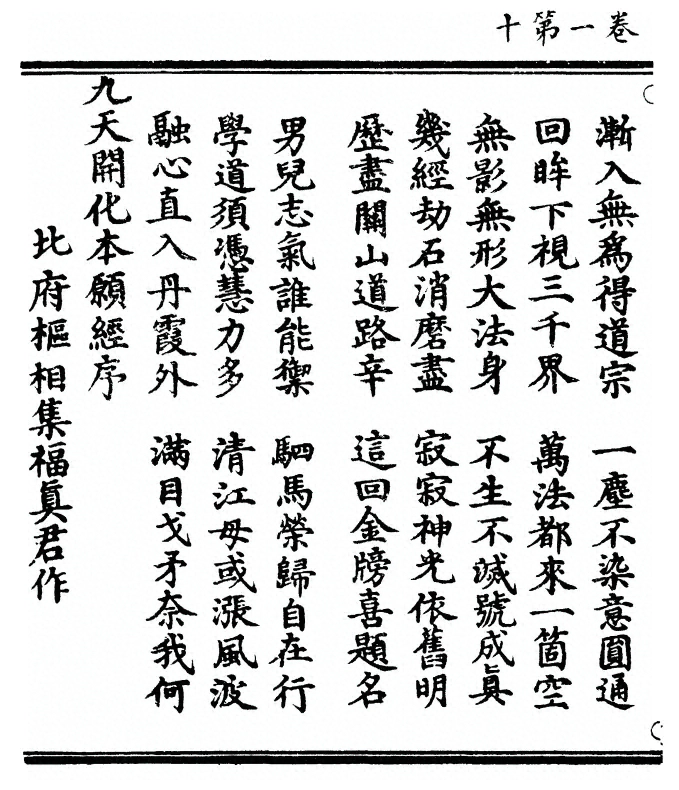 卷一第十
漸入無爲得道宗　一塵不染意圓通
回眸下視三千界　萬法都來一箇空
無影無形大法身　不生不滅號成眞
幾經劫石消磨盡　寂寂神光依舊明
歷盡關山道路辛　這回金牓喜題名
男兒志氣誰能禦　駟馬榮歸自在行
學道須憑慧力多　清江毋或漲風波
融心直入丹霞外　滿目戈矛奈我何
九天開化本願經序
比府樞相集福眞君作